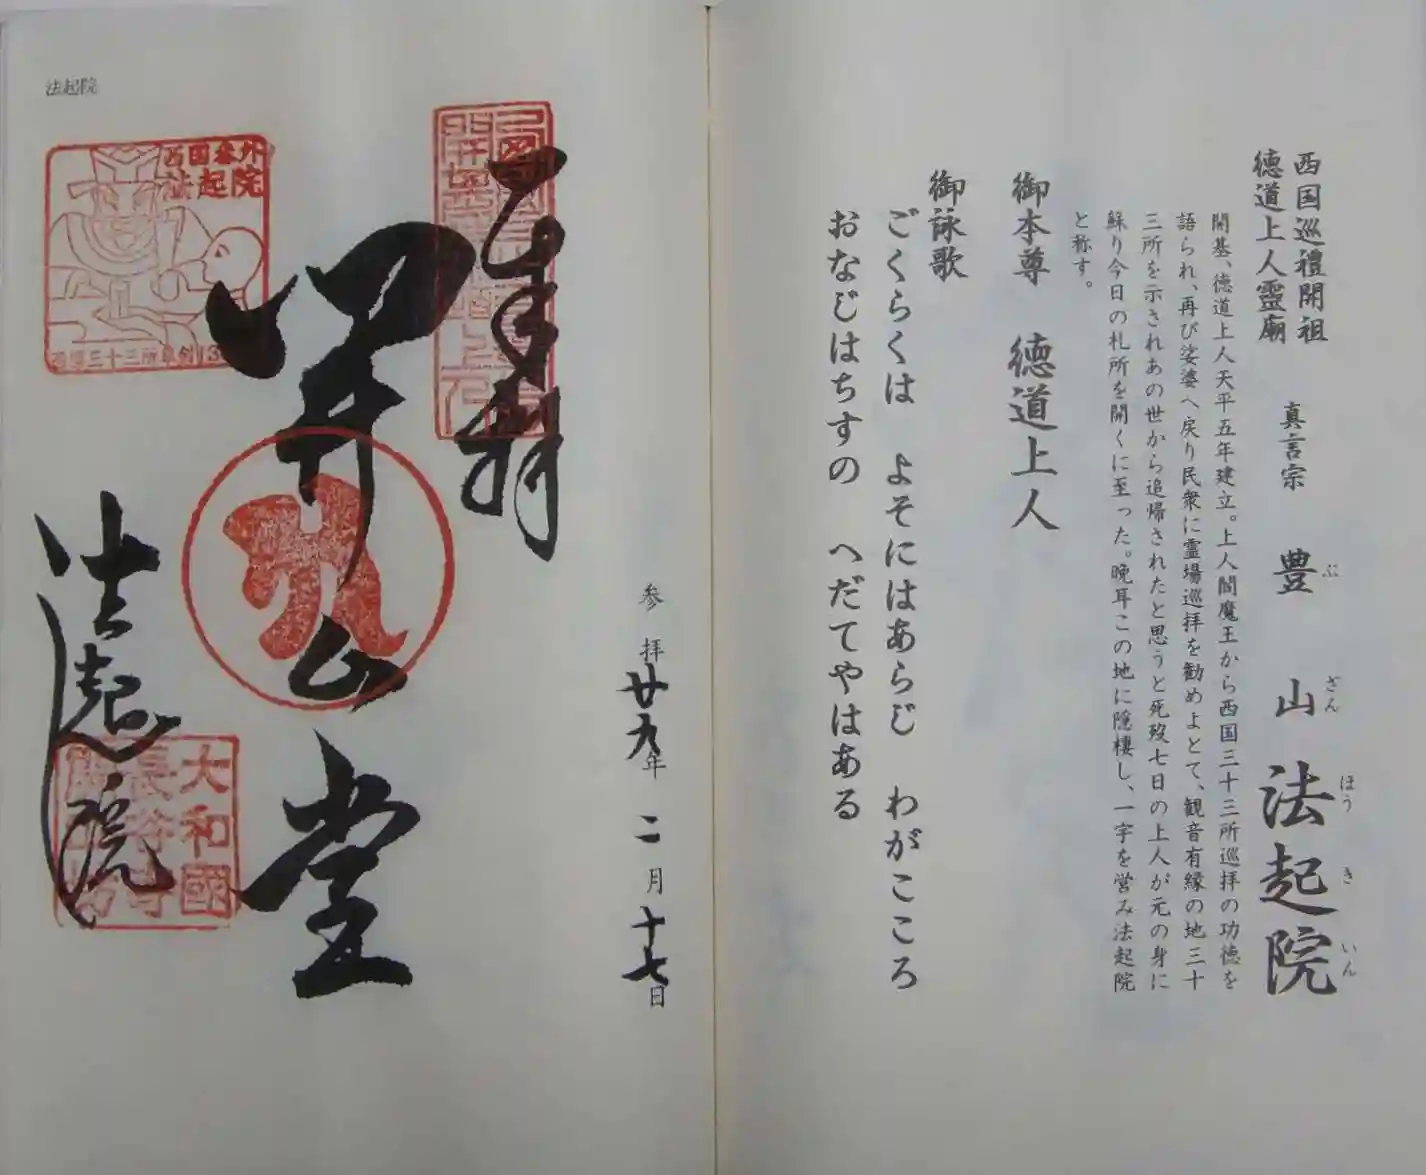 西国巡禮開祖
德道上人霊廟
真言宗 豊山 法起院
ぶ ざん ほう き いん
開基、徳道上人天平五年建立。上人閻魔王から西国三十三所巡拝の功徳を
語られ、再び娑婆へ戻り民衆に霊場巡拝を勧めよとて、観音有縁の地三十
三所を示されあの世から追帰されたと思うと死歿七日の上人が元の身に
蘇り今日の札所を開くに至った。晩耳この地に隠棲し、一宇を営み法起院
と称す。
御本尊 徳道上人
御詠歌
ごくらくは よそにはあらじ わがこころ
おなじはちすの へだてやはある
法起院
奉拝
開山堂
法起院
参拝廿九年二月十七日
西国番外
法起院
大和國
長谷寺